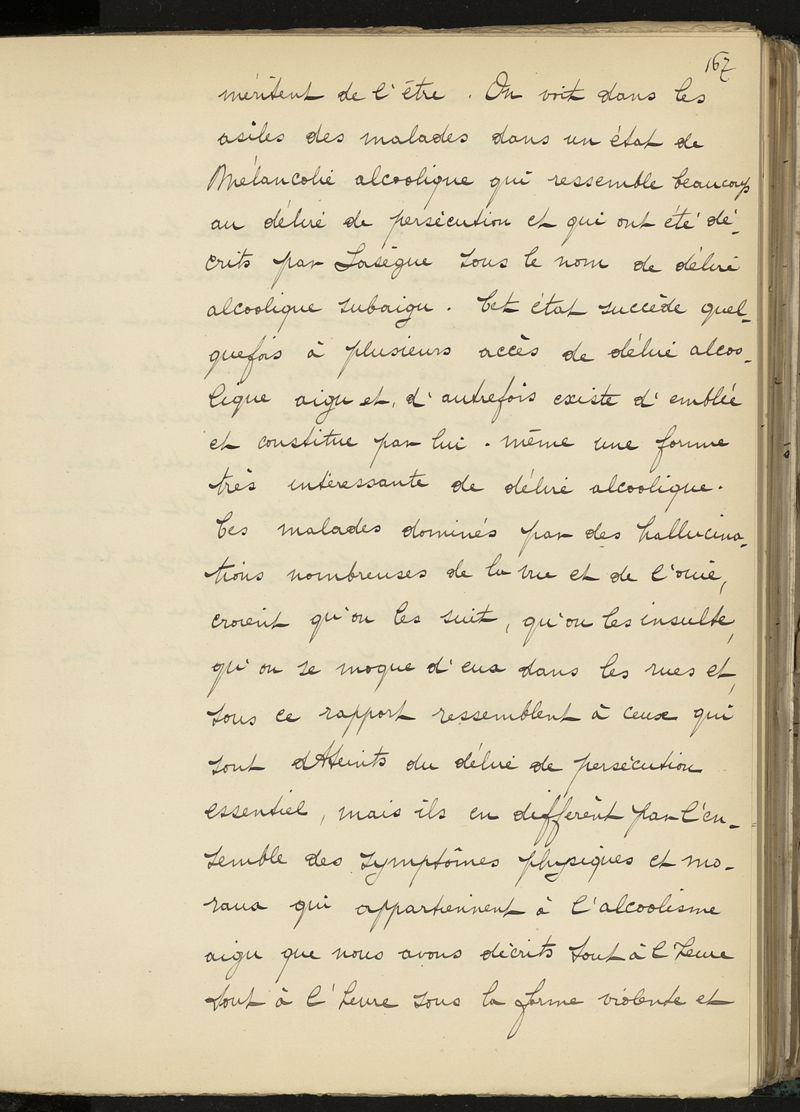 167
méritent de l'être. On voit dans les
asiles des malades dans un état de
Mélancolie alcoolique qui ressemble beaucoup
au délire de persécution et qui ont été dé-
crits par Lasègue sous le nom de délire
alcoolique subaigu. Cet état succède quel-
quefois à plusieurs accès de délire alcoo-
lique aigu et, d'autrefois existe d'emblée
et constitue par lui-même une forme
très intéressante de délire alcoolique.
Ces malades dominés par des hallucina-
tions nombreuses de la vue et de l'ouïe,
croient qu'on les suit, qu'on les insulte,
qu'on se moque d'eux dans les rues et,
sous ce rapport ressemblent à ceux qui
sont atteints du délire de persécution
essentiel, mais ils en diffèrent par l'en-
semble des symptômes physiques et mo-
raux qui appartiennent à l'alcoolisme
aigu que nous avons décrits tout à l'heure
tout à l'heure sous la forme violente et